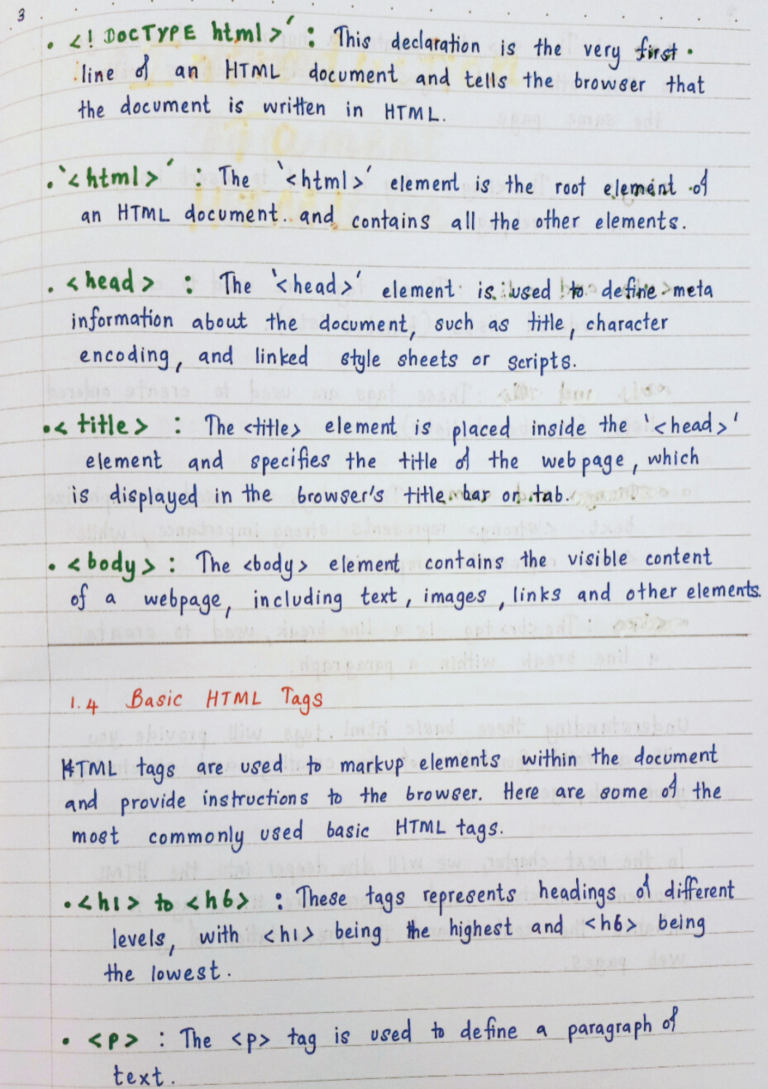 3
• <! DOCTYPE html>' : This declaration is the very first
line of an HTML document and tells the browser that
the document is written in HTML.
• '<html>' : The '<html>' element is the root element of
an HTML document. and contains all the other elements.
• <head> : The '<head>' element is used to define meta
information about the document, such as title, character
encoding, and linked style sheets or scripts.
• < title> : The <title> element is placed inside the <head>'
element and specifies the title of the web page, which
is displayed in the browser's title bar or tab.
• <body> : The <body> element contains the visible content
of a webpage, including text, images, links and other elements.
1.4 Basic HTML Tags
HTML tags are used to markup elements within the document
and provide instructions to the browser. Here are some of the
most commonly used basic HTML tags.
• <h1> to <h6> : These tags represents headings of different
levels, with <h1> being the highest and <h6> being
the lowest.
• <p> : The <p> tag is used to define a paragraph of
text.